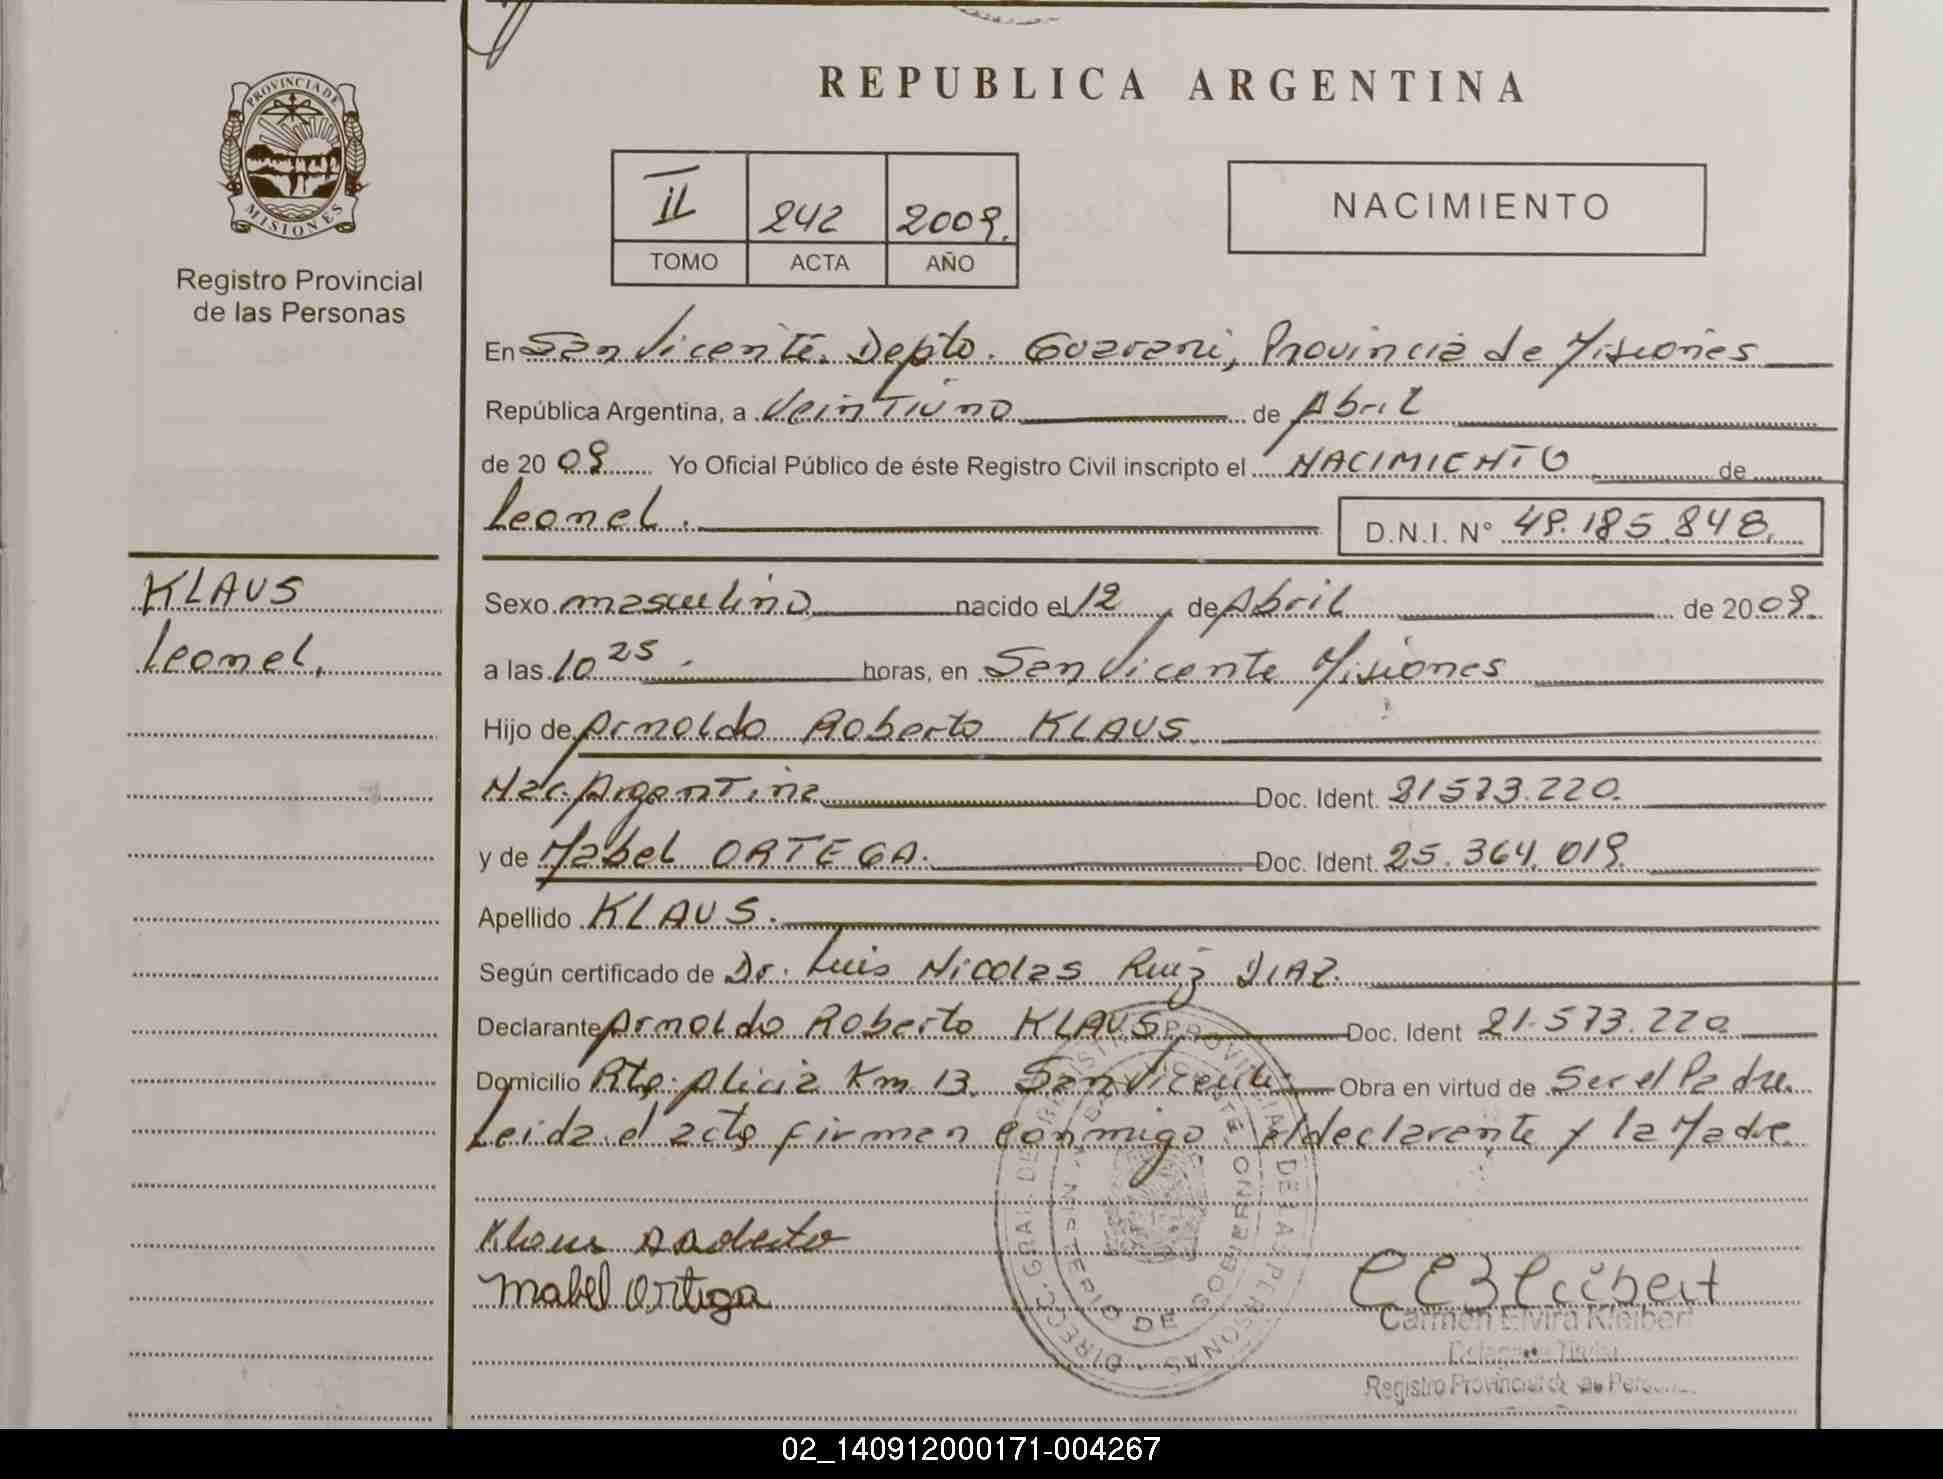 REPUBLICA ARGENTINA
PROVINCIA DE
MISIONES
Registro Provincial
de las Personas
II 242 2009.
TOMO ACTA AÑO
NACIMIENTO
En San Vicente. Depto. Guarani, Provincia de Misiones
República Argentina, a Veintiuno de Abril
de 20 09 Yo Oficial Público de éste Registro Civil inscripto el NACIMIENTO de
Leonel.
D.N.I. N° 49.185.848.
KLAUS
Leonel.
Sexo masculino nacido el 12 de Abril de 20 09.
a las 10 25. horas, en San Vicente Misiones
Hijo de Arnoldo Roberto KLAUS.
Nac. Argentina Doc. Ident. 21573.220.
y de Mabel ORTEGA. Doc. Ident. 25.364.019.
Apellido KLAUS.
Según certificado de Dr. Luis Nicolas Ruiz DIAZ.
Declarante Arnoldo Roberto KLAUS Doc. Ident 21.573.220
Domicilio Rto. Alicia Km 13. San Vicente Obra en virtud de Ser el Padre.
Leida el acta firman conmigo el declarante y la Madre
Klaus
Mabel Ortega
Carmen Elvira Kleibert
Registro Provincial de las
DIRECC. GRAL. DE REGISTRO PROVINCIAL DE LAS PERSONAS
MINISTERIO DE GOBIERNO
SAN VICENTE
02_140912000171-004267